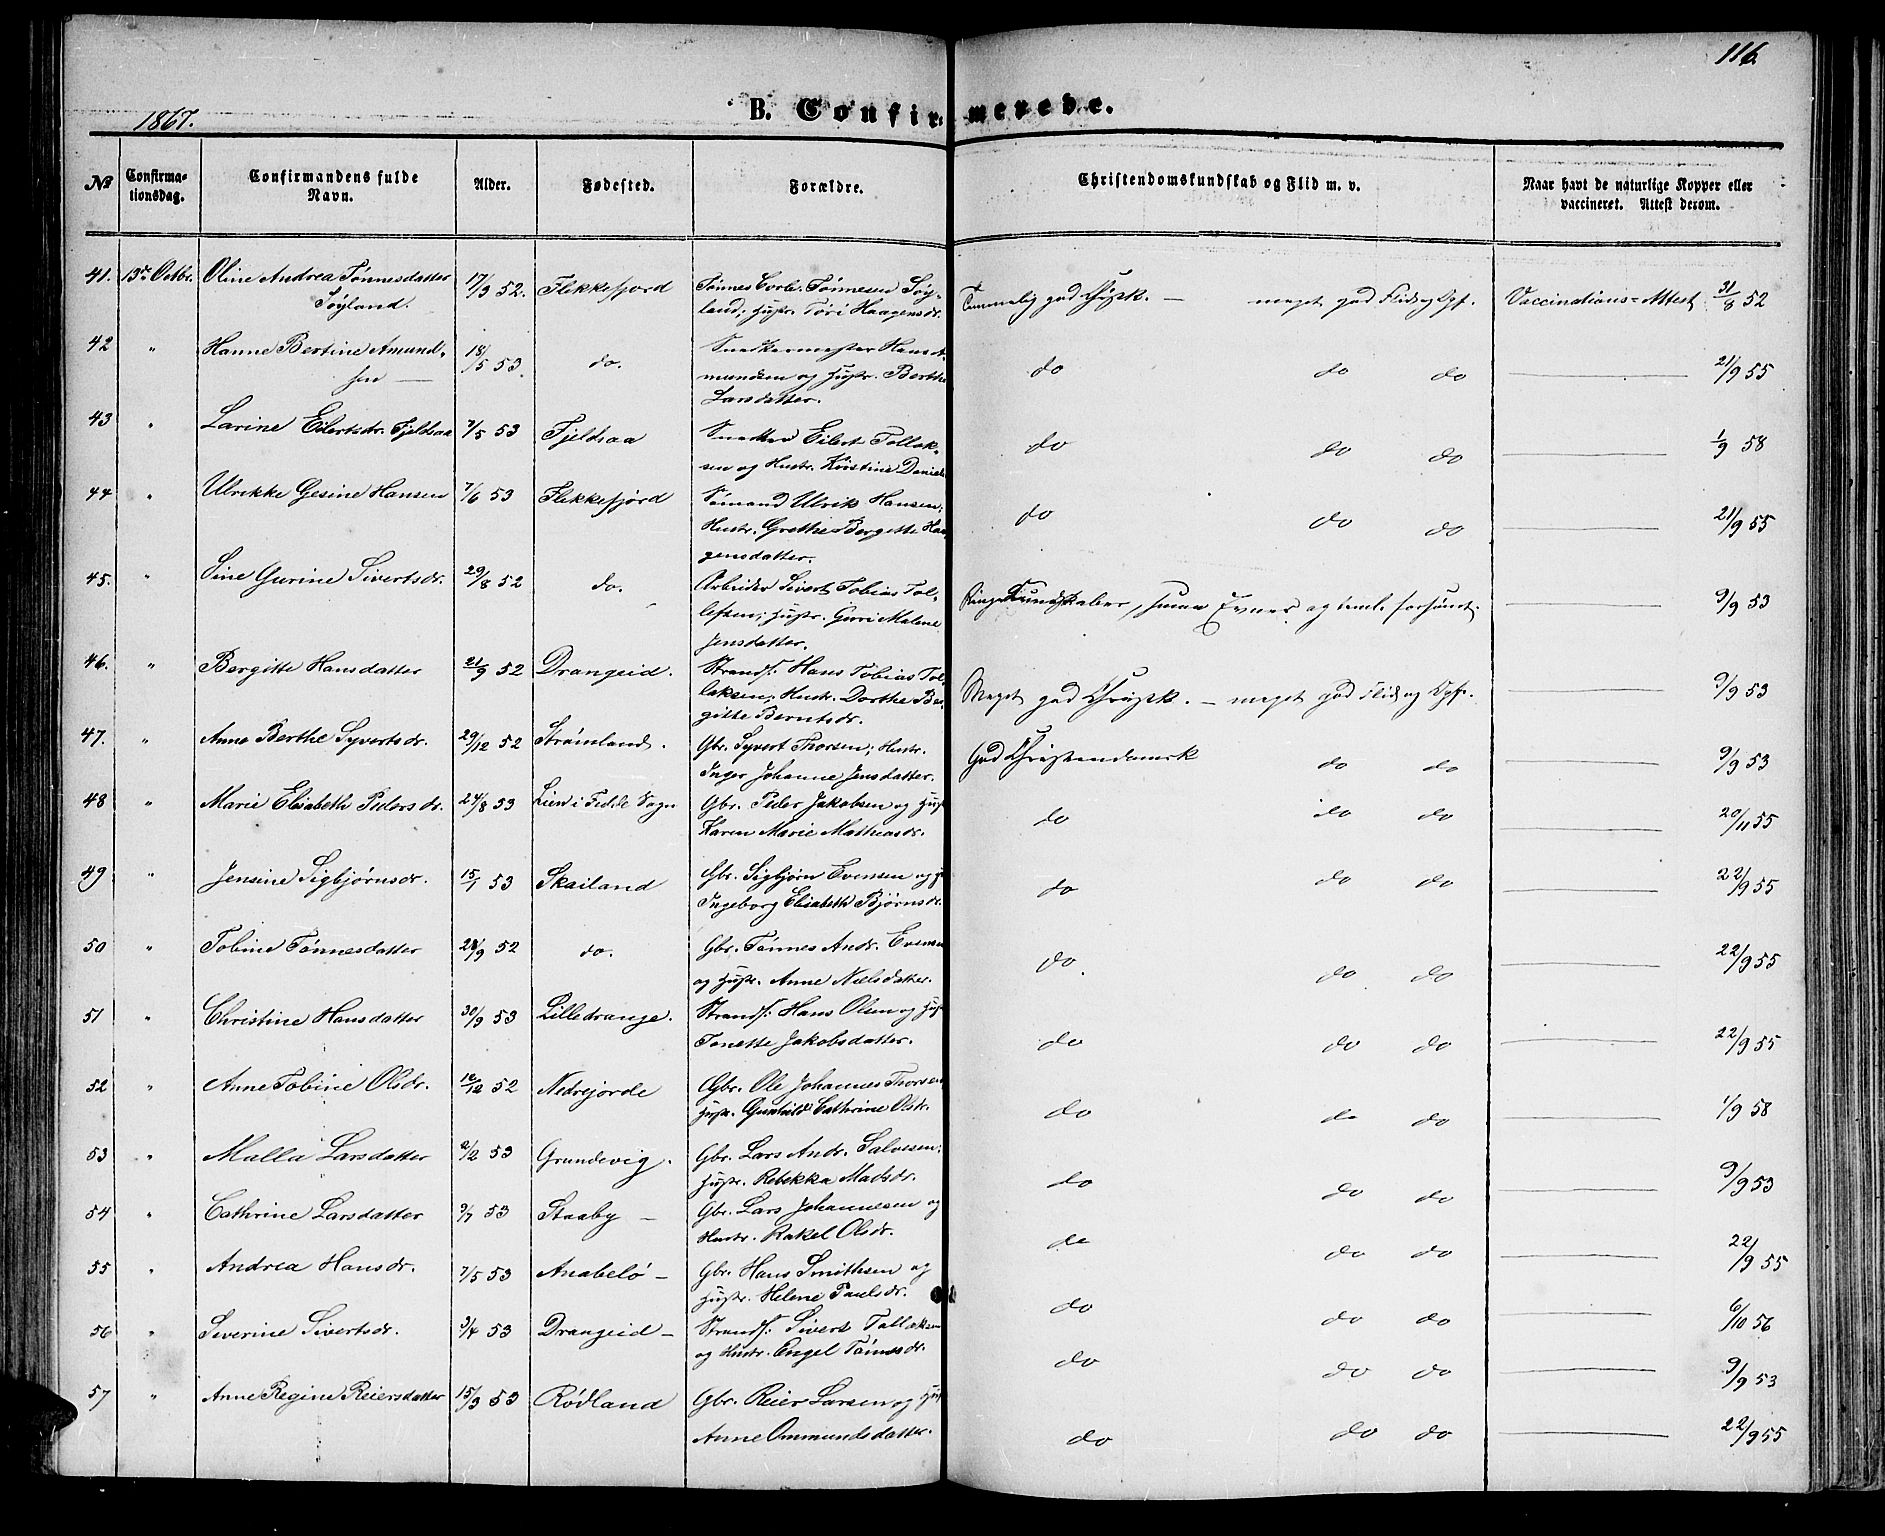 116
1867.
B. Confirmerede.
No
Confirma-
tionsdag.
Confirmandens fulde
Navn.
Alder.
Fødested.
Forældre.
Christendomskundskab og Flid m. v.
Naar havt de naturlige Kopper eller
vaccineret. Attest derom.
41. 13de Octbr. Oline Andrea Tønnesdatter 17/9 52. Flekkefjord Tønnes Corn. Tønnesen Søy-
Søyland. land, Hustr. Tøri Haagensdr. Temmelig god Chrdsk. — meget god Flid og Opf. Vaccinations-Attest 31/8 52
42 " Hanne Bertine Amund- 18/5 53. do. Snedkermester Hans A-
sen — mundsen og Hustr. Berthe do do do 21/9 55
Larsdatter.
43 " Larine Eilertsdr. Fjeldsaa 7/5 53 Fjeldsaa Snedker Eilert Tollak-
sen og Hustr. Kristine Daniels do do do 1/9 58
44 " Ulrikke Gesine Hansen 7/6 53 Flekkefjord Sømand Ulrik Hansen,
Hustr. Grethe Bergitte Haa- do do do 21/9 55
gensdatter.
45. " Sine Gurine Sivertsdr. 29/8 52 do. Arbeider Sivert Tobias Tol-
lefsen, Hustr. Guri Malene Ringe Kundskaber, smaa Evner og teml. forsømt. 9/9 53
Jensdatter.
46. " Bergitte Hansdatter 21/9 52 Drangeid. Strands. Hans Tobias Tol-
laksen, Hustr. Dorthe Ber- Meget god Chrdsk. — meget god Flid og Opf. 9/9 53
gitte Berntsdr.
47. " Anne Berthe Syvertsdr. 29/12 52 Strømland. Gbr. Syvert Thorsen, Hustr.
Inger Johanne Jensdatter. God Christendomsk do do 9/9 53
48 " Marie Elisabeth Pedersdr. 24/8 53 Lien i Fedde Sogn Gbr. Peder Jakobsen og Hustr
Karen Marie Mathiasdr. do do do 20/11 55
49 " Jensine Sigbjørnsdr. 15/1 53 Skailand Gbr. Sigbjørn Evensen og H
Ingeborg Elisabeth Bjørnsdr. do do do 22/9 55
50 " Tobine Tønnesdatter 28/9 52 do. Gbr. Tønnes Andr. Evensen
og Hustr. Anne Nielsdatter. do do do 22/9 55
51 " Christine Hansdatter 30/9 53 Lilledrange. Strands. Hans Olsen og Hus
Tonette Jakobsdatter. do do do 22/9 55
52 " Anne Tobine Olsdr. 12/12 52 Nedrejorde Gbr. Ole Johannes Thorsen,
Hustr. Gunhild Cathrine Olsdr. do do do 1/9 58
53 " Malla Larsdatter 2/2 53 Grundevig. Gbr. Lars Andr. Salvesen,
Hustr. Rebekka Madsdr. do do do 9/9 53
54 " Cathrine Larsdatter 9/7 53 Staaby — Gbr. Lars Johannesen og
Hustr. Rakel Olsdr. do do do 22/9 55
55 " Andrea Hansdr. 7/5 53 Anabelø — Gbr. Hans Smithsen og
Hustr. Helene Paulsdr. do do do 6/10 56
56 " Severine Sivertsdr. 3/4 53 Drangeid — Strands. Sivert Tollaksen
og Hustr. Engel Tønnesdr. do do do 9/9 53
57 " Anne Regine Reiersdatter 15/3 53 Rødland Gbr. Reier Larsen og Hus
Anne Ommundsdatter. do do do 22/9 55